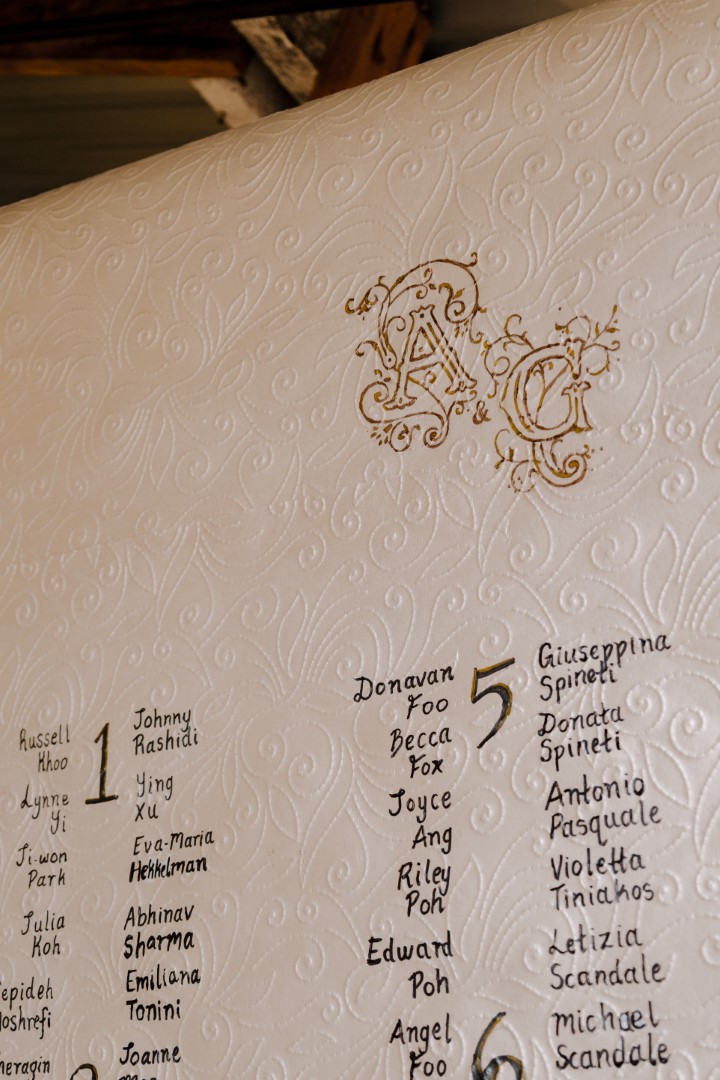 A & G
1
Russell
Khoo
Lynne
Yi
Ji-won
Park
Julia
Koh
Johnny
Rashidi
Ying
Xu
Eva-Maria
Hekkelman
Abhinav
Sharma
Emiliana
Tonini
Joanne
5
Donavan
Foo
Becca
Fox
Joyce
Ang
Riley
Poh
Edward
Poh
Angel
Foo
Giuseppina
Spineti
Donata
Spineti
Antonio
Pasquale
Violetta
Tiniakos
Letizia
Scandale
6
Michael
Scandale